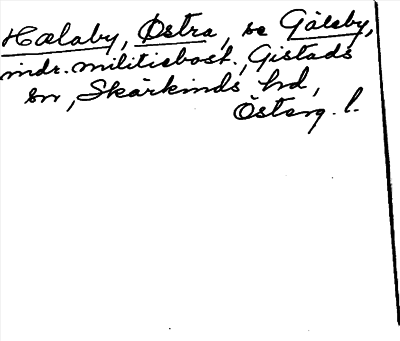 Hælaby, Østra, se Gålsby,
indr. militiebost., Gistads
sn, Skärkinds hd,
Österg. l.